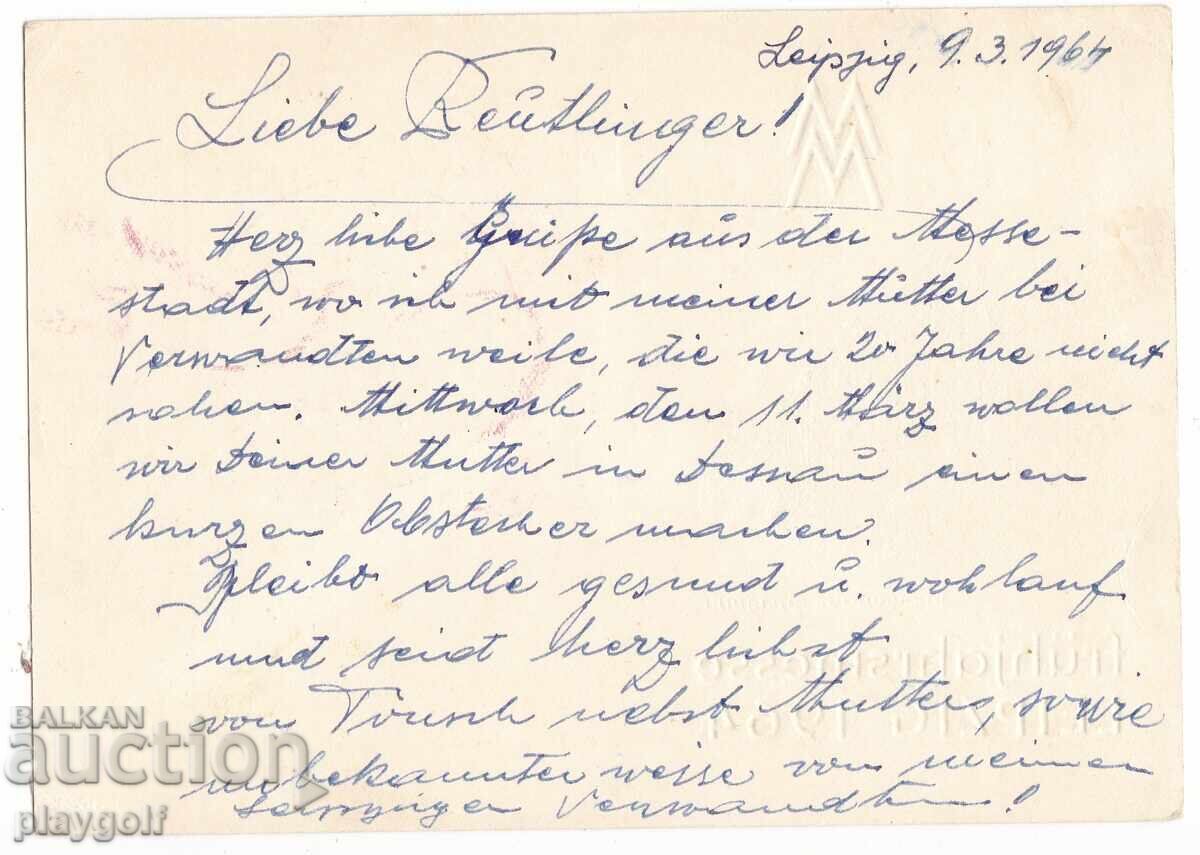 Leipzig, 9.3.1964
Liebe Reutlinger!
Herzliebe Grüße aus der Messe-
stadt, wo ich mit meiner Mutter bei
Verwandten weile, die wir 20 Jahre nicht
sahen. Mittwoch, den 11. März wollen
wir Deiner Mutter in Dessau einen
kurzen Abstecher machen.
Bleibt alle gesund u. wohlauf
und seid herzlichst
von Tousch nebst Mutter, sowie
unbekannterweise von meinen
Leipziger Verwandten!
frühjahrsmesse
LEIPZIG 1964
BALKAN
auction
playgolf